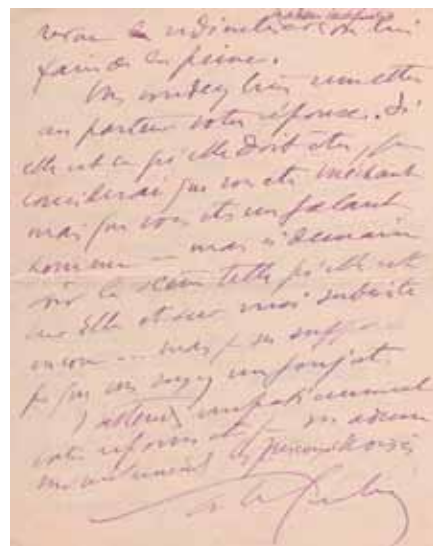 faire de la peine.
Vous voudrez bien remettre
au porteur votre réponse. Si
elle est ce qu'elle doit être, je
considérerai que vous êtes méchant
mais que vous êtes un galant
homme — mais si demain
soir la scène telle qu'elle est
sur Elle et sur moi subsiste
encore — mais je ne suppose
pas que vous soyez un goujat.
J'attends impatiemment
votre réponse et vous adresse
mes sentiments